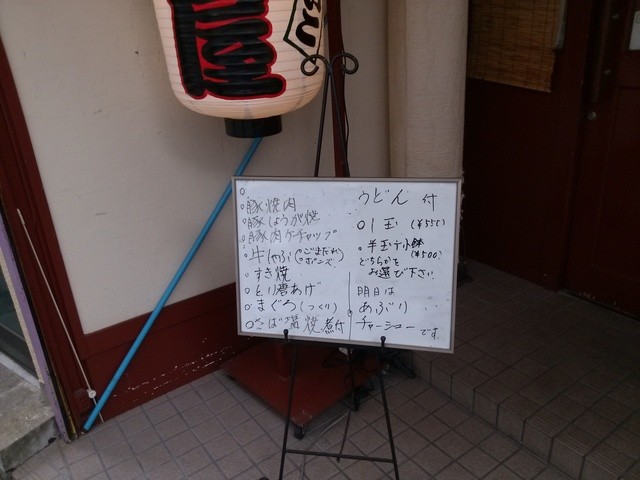 豚焼肉
豚しょうが焼
豚肉ケチャップ
牛しゃぶ(ごまだれ
ポンズ)
すき焼
とり唐あげ
まぐろ(づくり)
さば塩焼 煮付
うどん 付
1玉 (¥550)
半玉+小鉢
(¥500)
どちらかを
お選び下さい
明日は
あぶり
チャーシュー です。